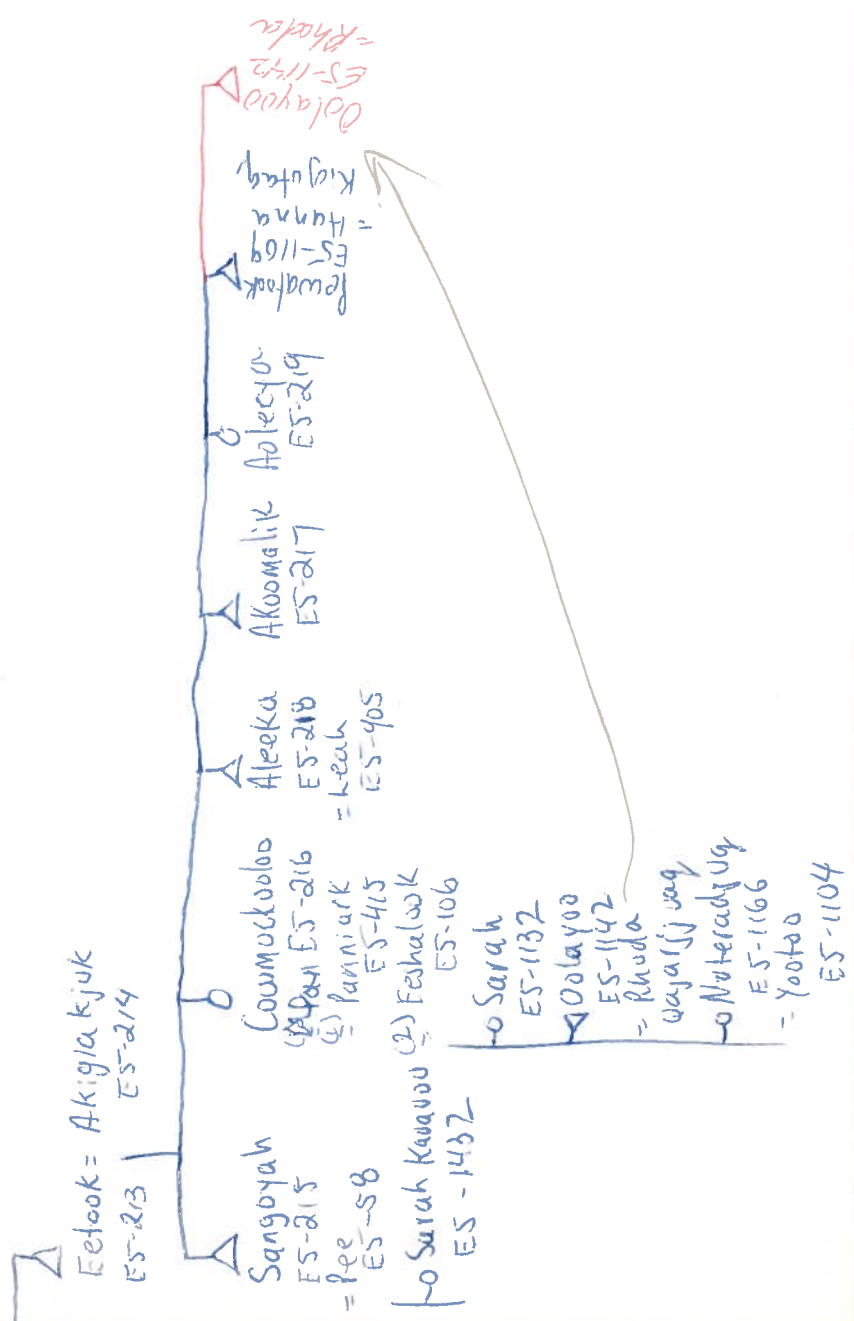 Eetook = Akiglakjuk
E5-213
E5-214
Sangoyah
E5-215
= Pee
E5-58
Sarah
E5-1432
Coumockooloo
E5-216
(1) Panniark
E5-415
(2) Eeshalook
E5-106
Sarah
E5-1132
Oolayoo
E5-1142
= Rhoda
E5-1166
= Yootoo
E5-1104
Aleeka
E5-218
= Leah
E5-405
Akoomalik
E5-217
Aoleeya
E5-219
Pewatook
E5-1169
= Hanna
Kigutaq
Oolayoo
E5-1142
= Rhoda